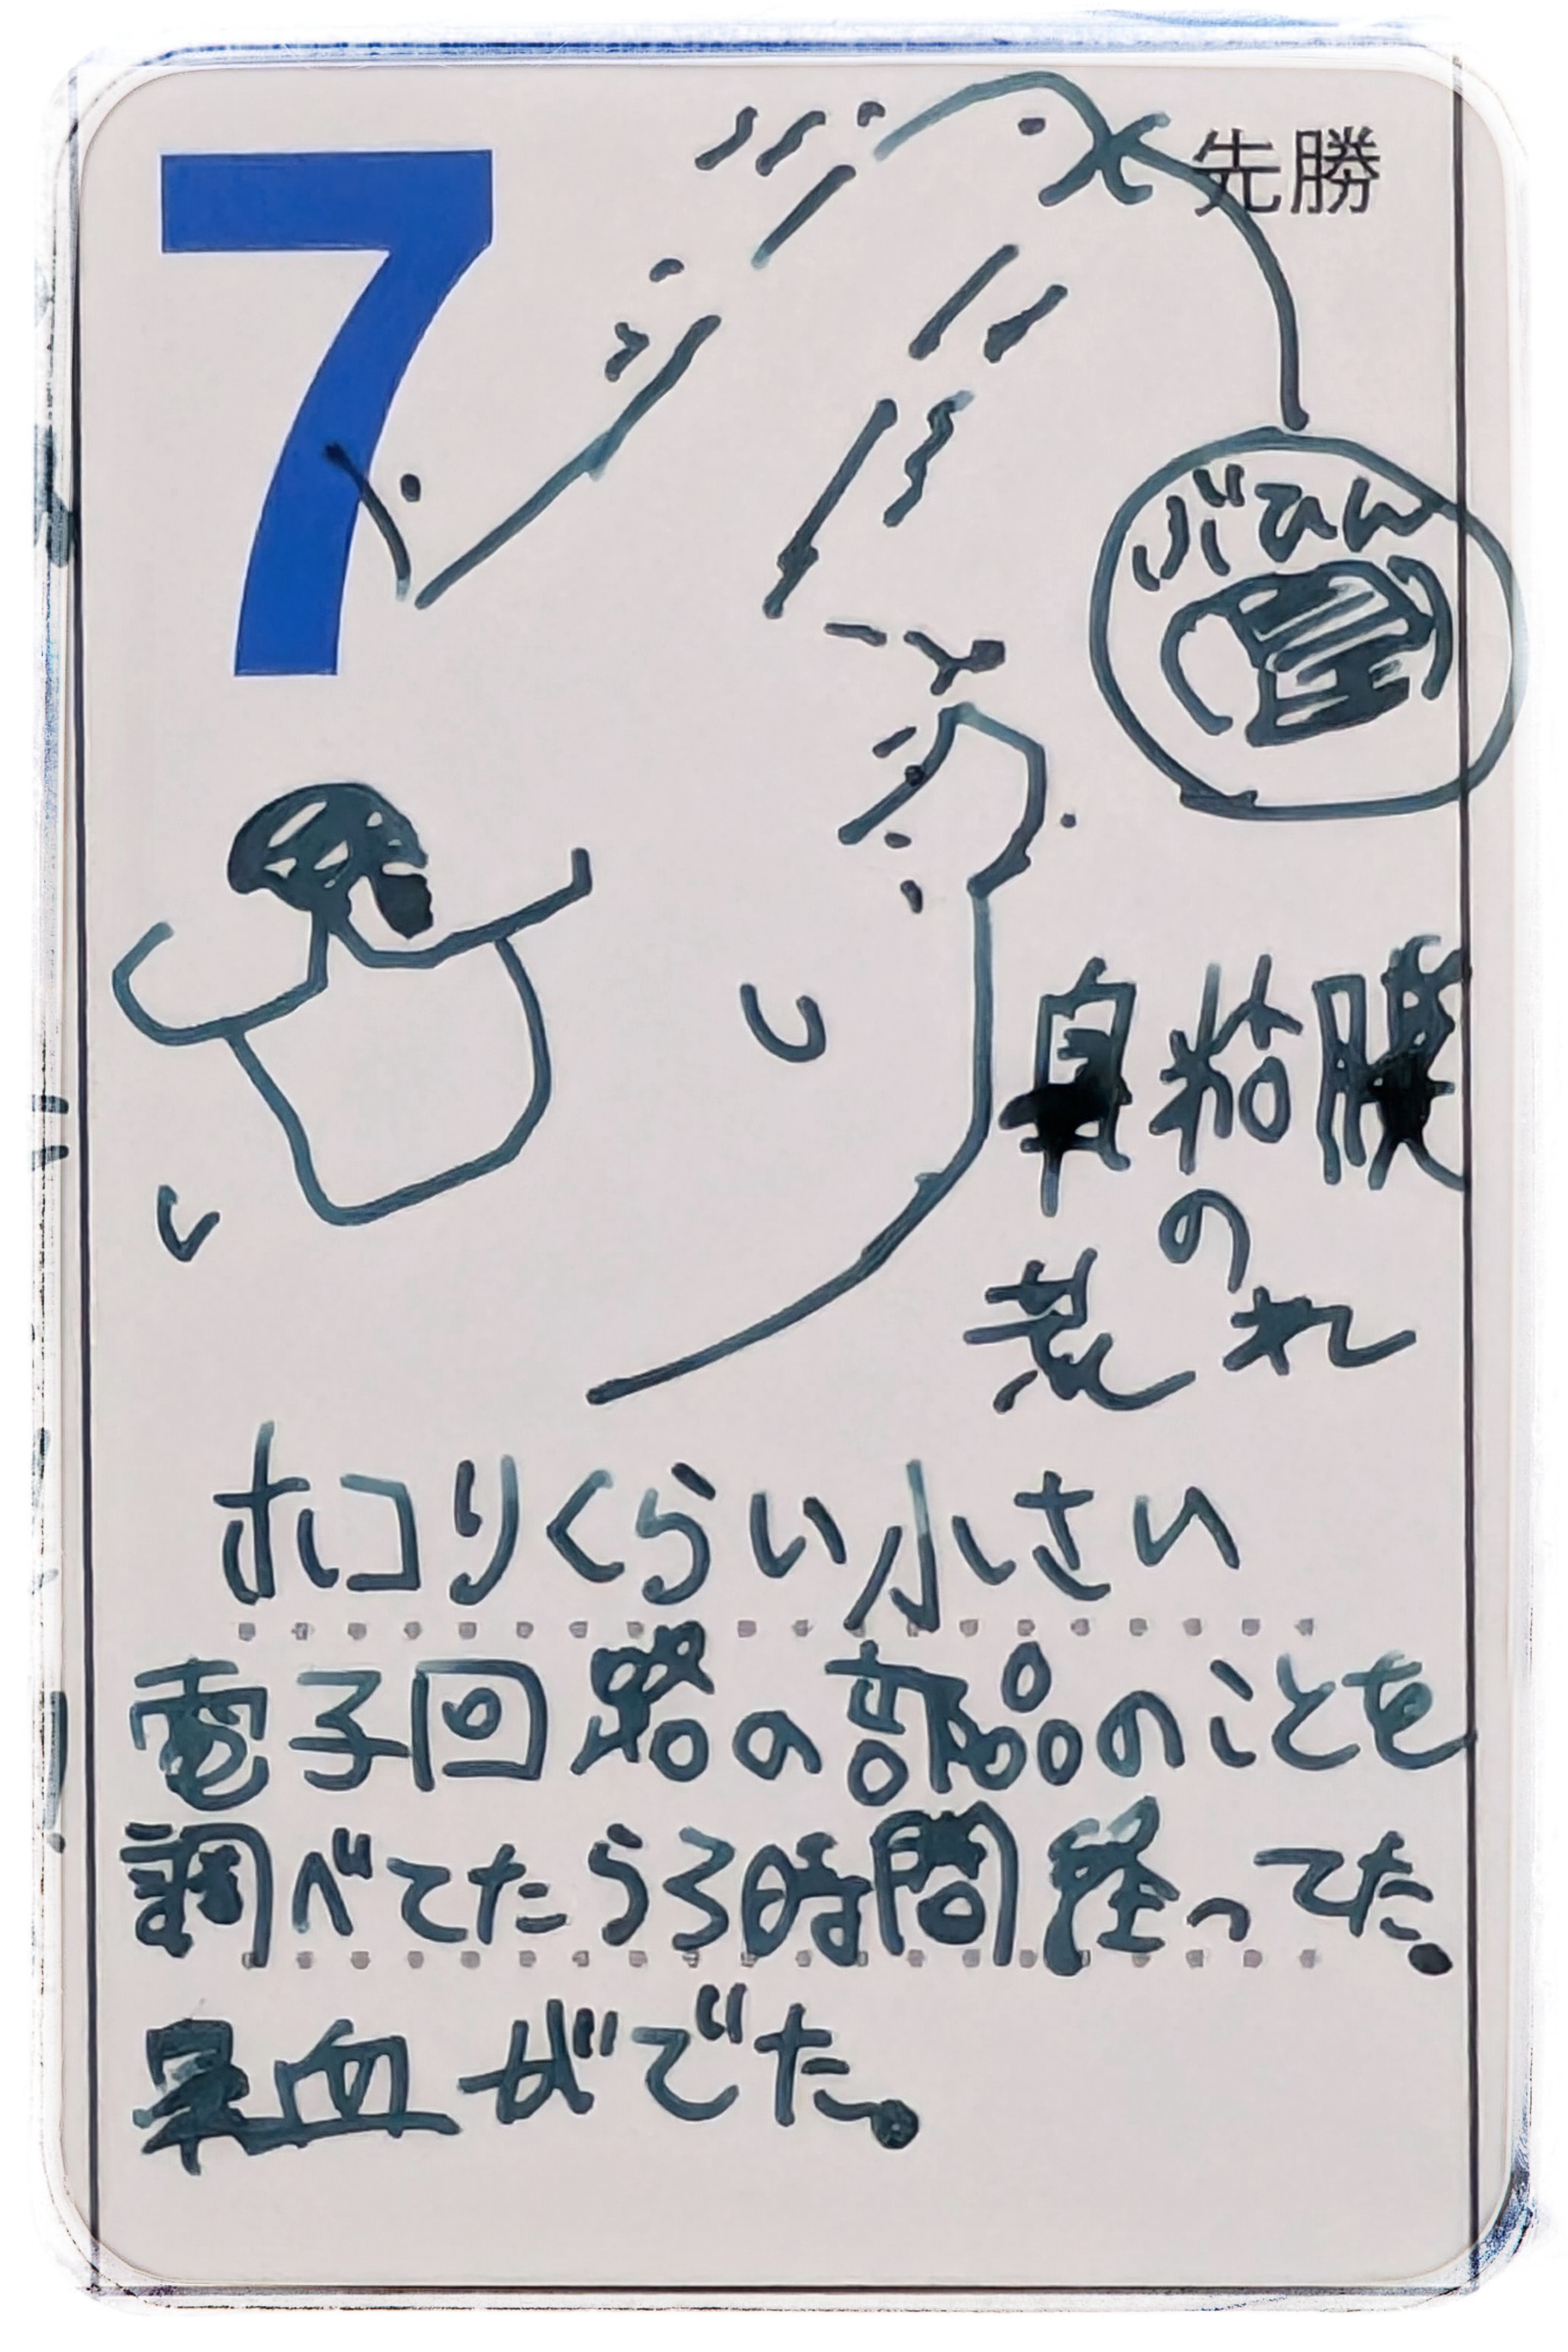 7
先勝
ぶひん
鼻粘膜
の
荒れ
ホコリくらい小さい
電子回路の部品のことを
調べてたら3時間経ってた。
鼻血がでた。